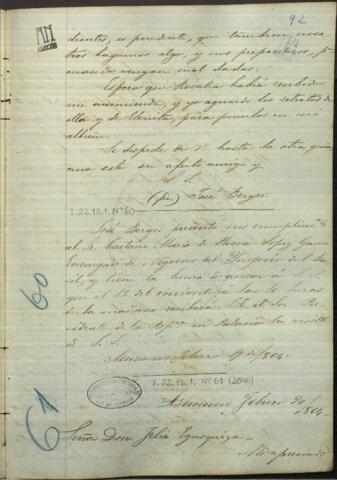 92
dientes, es prudente, que tambien noso
tros hagamos algo, y nos preparemos, pa
cuando vengan mal dadas.
Espero que Rosalia habrá recibido
mi encomienda, y yo aguardo los retratos de
ella y de Benita, para ponerlos en mi
album.
Se despide de V. hasta la otra, quien
como este su afecto amigo y
S. S.
(fir) José Berges
I-22, 12, 1, Nº 60
60
José Berges presenta sus cumplimtos
al Sr. Caetano Maria de Paiva Lopez Gama
Encargado de Negocios del Imperio del Bra
sil, y tiene la honra de avisar á S. S.
que el 15 del corriente á las 10 horas
de la mañana recibirá S. E. el Sor. Pre
sidente de la Repca. en Palacio la visita
de S. S.
Asuncion Febrero de 1864.
I-22, 12, 1, Nº 61
61
Asuncion Febro. 20/1864
Señor Don Felix Egusquiza
Mi apreciado